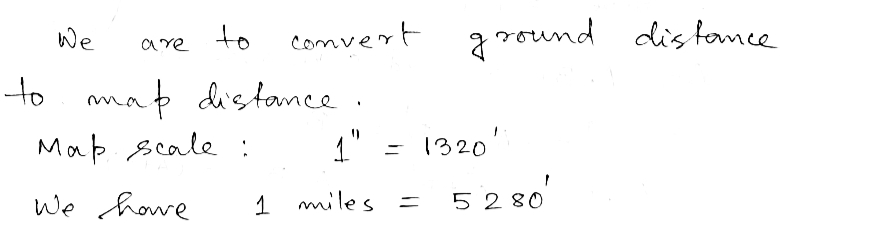 We are to convert ground distance
to map distance.
Map scale : 1" = 1320'
We have 1 miles = 5280'